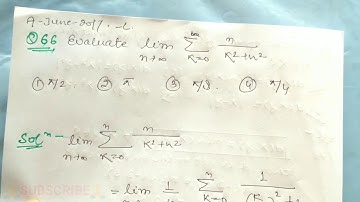 A-June-2017.-L.
Q66 Evaluate lim n→∞ ∞ Σ K=0 n / K²+n²
① π/2. ② π ③ π/3. ④ π/4
Solⁿ- lim n→∞ n Σ K=0 n / K²+n²
= lim n→∞ 1/n n Σ K=0 1
SUBSCRIBE